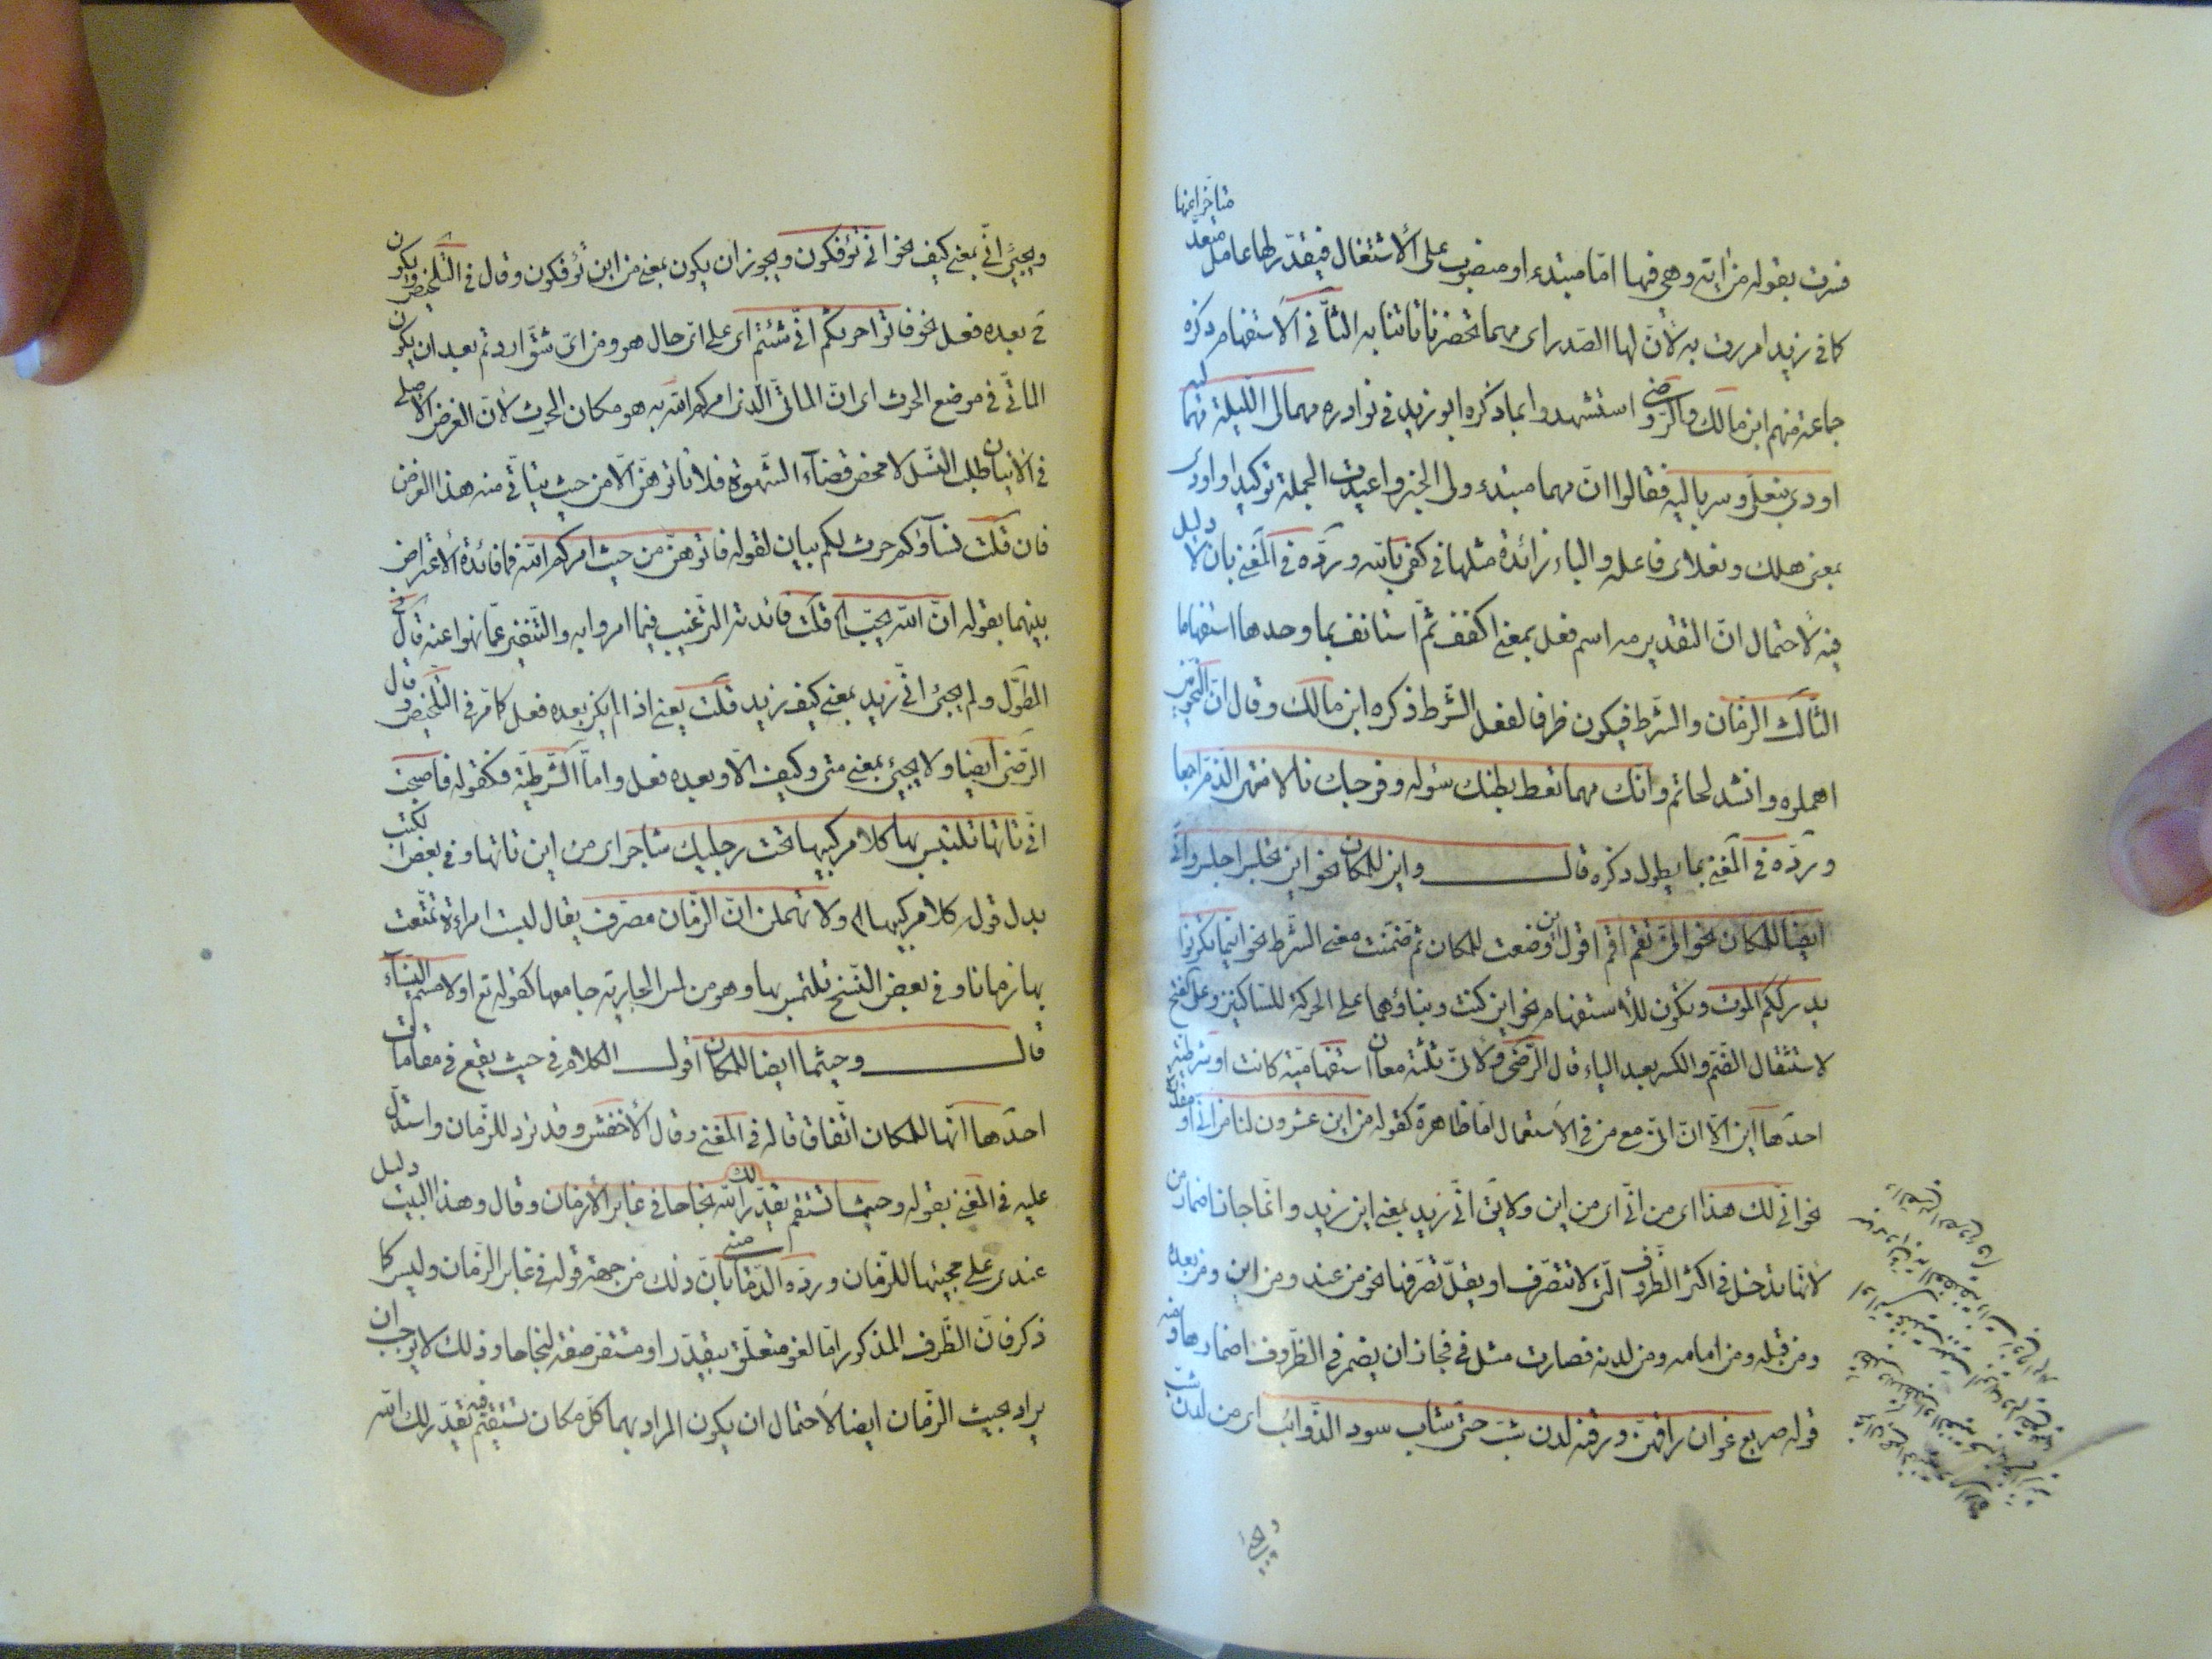 متأخرا عنها
فسرت بقوله من اية وهى فيها امّا مبتدء او منصوب على الاشتغال فيقدّر لها عامل متعدّ
كما فى زيدا مررت به لأنّ لها الصّدر اى مهما تحضرنا تاتنا به الثّانى الاستفهام ذكره
جماعة منهم ابن مالك والرّضى استشهدوا بما ذكره ابو زيد فى نوادره مهما لى اللّيلة مهما ليه
اودى بنعلىّ وسرباليه فقالوا انّ مهما مبتدء ولى الخبر واعيدت الجملة توكيدا واودى
بمعنى هلك ونعلاى فاعله والباء زائدة مثلها فى كفى باللّه وردّه فى المغنى بان لا دليل
فيه لاحتمال انّ التقدير مه اسم فعل بمعنى اكفف ثمّ استانف بما وحدها استفهاما
الثّالث الزمان والشّرط فيكون ظرفا لفعل الشّرط ذكره ابن مالك وقال انّ النّحويّين
اهملوه وانشد لحاتم وانّك مهما تعط بطنك سؤله وفرجك نالا منتهى الذّمّ اجمعا
وردّه فى المغنى بما يطول ذكره قال واين للمكان نحو اين تجلس اجلس وانّى
ايضا للمكان نحو انّى تقم اقم اقول اين وضعت للمكان ثمّ ضمّنت معنى الشّرط نحو اينما تكونوا
يدرككم الموت وتكون للاستفهام نحو اين كنت وبناؤهما على الحركة للسّاكنين وعلى الفتح
لاستثقال الضّمّ والكسر بعد الياء قال الرّضىّ ولانّى ثلثة معان استفهاميّة كانت او شرطيّة
احدها اين الاّ انّ انّى مع من فى الاستعمال امّا ظاهرة كقوله من اين عشرون لنا من انّى او مقدّرة
نحو انّى لك هذا اى من انّى اى من اين ولا يق انّى زيد بمعنى اين زيد وانّما جاز اضمار من
لانّها تدخل فى اكثر الظّروف الّتى لا تتصّرف او يقلّ تصّرفها نحو من عند ومن اين ومن بعده
ومن قبله ومن امامه ومن لدنه فصارت مثل فى فجاز ان يضمر فى الظّروف اضمارها ومنه
قوله صريع غوان راقهنّ ورقنه لدن شبّ حتّى شاب سود الذّوائب اى من لدن شبّ
ويجئ
ويجئ انّى بمعنى كيف نحو انّى تؤفكون ويجوز ان يكون بمعنى من اين تؤفكون وقال فى التّلخيص ويكون
ح بعده فعل نحو فاتوا حرثكم انّى شئتم اى على اىّ حال هو ومن اىّ شقّ اردتم بعد ان يكون
المأتىّ فى موضع الحرث اى انّ المأتىّ الّذى امركم اللّه به هو مكان الحرث لانّ الغرض الاصلى
فى الاتيان طلب النّسل لا محض قضاء الشّهوة فلا تاتوهنّ الاّ من حيث يتأتّى منه هذا الغرض
فان قلت نساؤكم حرث لكم بيان لقوله فاتوهنّ من حيث امركم اللّه فما فائدة الاعتراض
بينهما بقوله انّ اللّه يحبّ اه قلت فائدته التّرغيب فيما امروا به والتّنفير عمّا نهوا عنه قال فى
المطوّل ولم يجئ انّى زيد بمعنى كيف زيد قلت يعنى اذا لم يكن بعده فعل كما مرّ فى التّلخيص وقال
الرّضى ايضا ولا يجيئ بمعنى متى وكيف الاّ وبعده فعل وامّا الشّرطيّة فكقوله فاصبحت
انّى تاتها تلتبس بها كلا مركبيها تحت رجليك شاجر اى من اين تاتها وفى بعض الكتب
بدل قوله كلا مركبيها اه ولا تهملن انّ الزمان مصرّف يقال لبست امراءة تمتّعت
بها زمانا وفى بعض النّسخ تلتمس بها وهو من لمس الجارية جامعها كقوله تع او لامستم النّساء
قال وحيثما ايضا للمكان اقول الكلام فى حيث يقع فى مقامات
احدها انّها للمكان اتّفاق قاله فى المغنى وقال الأخفش وقد ترد للزّمان واستدلّ
عليه فى المغنى بقوله وحيثما تستقم يقدّر لك اللّه نجاحا فى غابر الأزمان وقال وهذا البيت دليل
عندى على مجيئها للزّمان وردّه الدّمامينى بانّ ذلك من جهة قوله فى غابر الزّمان وليس كما
ذكر فانّ الظّرف المذكور امّا لغو متعلّق بيقدّر او مستقر صفة لنجاحا وذلك لا يوجب ان
يراد بحيث الزّمان ايضا لاحتمال ان يكون المراد بهما كلّ مكان تستقم فيه يقدّر لك اللّه